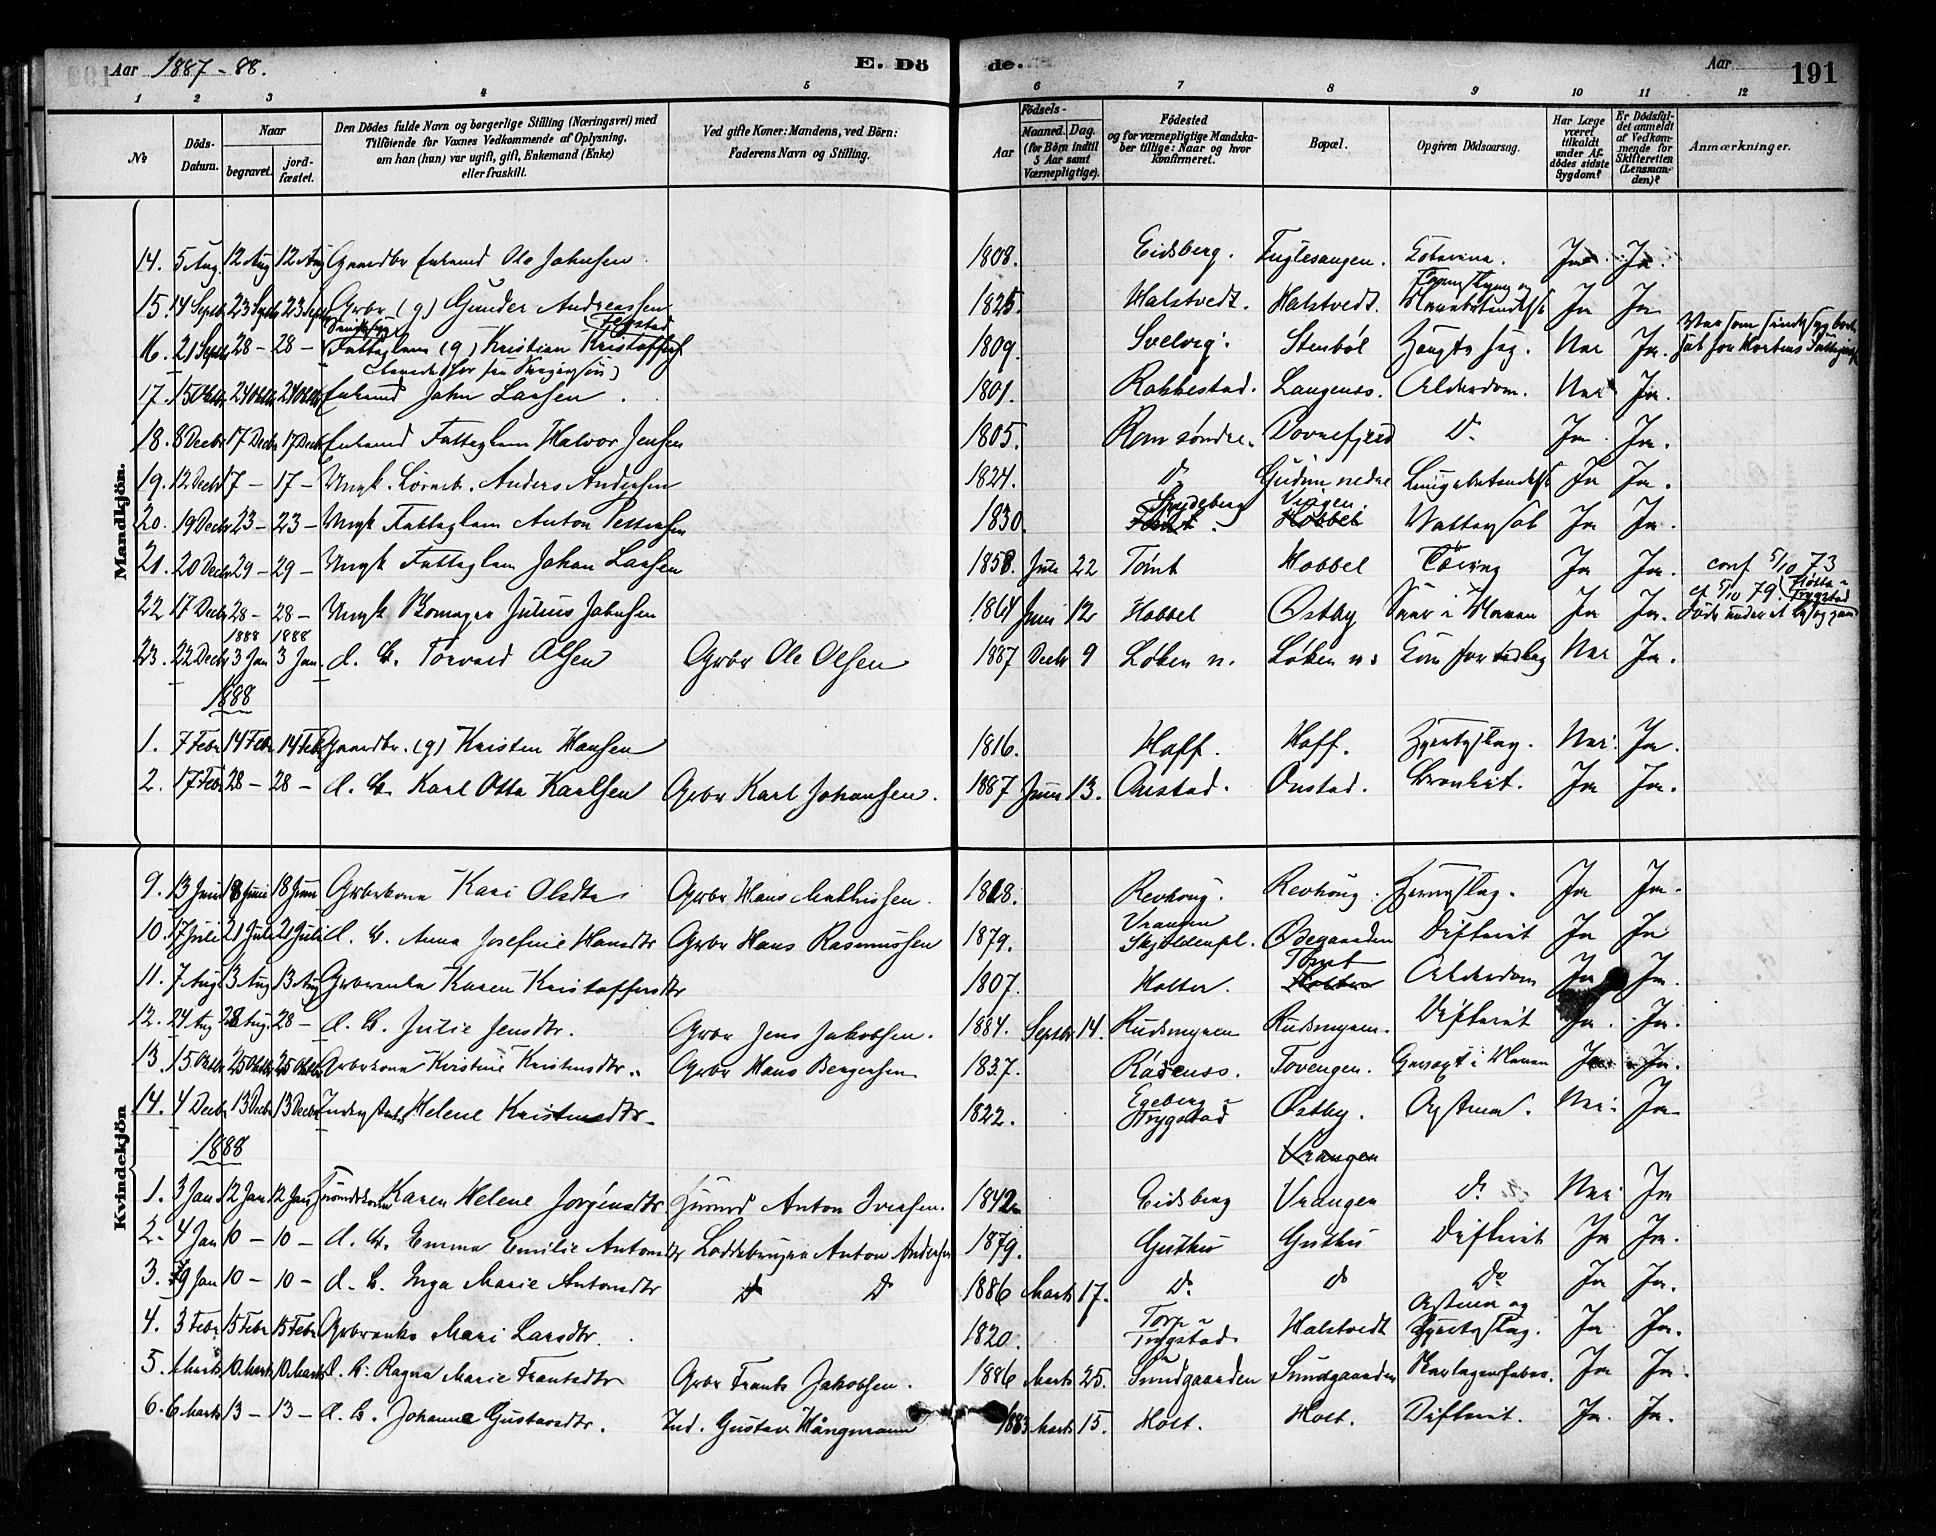 Aar 1887-88.
E. Dö
de.
Aar
191
1 2 3 4 5 6 7 8 9 10 11 12
No
Döds-Datum.
Naar
begravet.
jord-fæstet.
Den Dödes fulde Navn og borgerlige Stilling (Næringsvei) med
Tilföiende for Voxnes Vedkommende af Oplysning,
om han (hun) var ugift, gift, Enkemand (Enke)
eller fraskilt.
Ved gifte Koner: Mandens, ved Börn:
Faderens Navn og Stilling.
Födsels-
Aar
Maaned. Dag.
(for Börn indtil
5 Aar samt
Værnepligtige).
Födested
og for værnepligtige Mandska-
ber tillige: Naar og hvor
konfirmeret.
Bopæl.
Opgiven Dödsaarsag.
Har Læge
været
tilkaldt
under Af-
dödes sidste
Sygdom?
Er Dödsfal-
det anmeldt
af Vedkom-
mende for
Skifteretten
(Lensman-
den)?
Anmærkninger.
Mandkjön.
14. 5 Aug. 12 Aug 12 Aug Gaardbr Enkemd Ole Johnsen 1808. Eidsberg. Fuglesangen. Ja Ja.
15. 14 Septb 23 Septb 23 Septb Grbr (g) Gunder Andreassen 1825 Halstvedt. Halstvedt. Ja Ja
16. 21 Septb 28 – 28 – Fattiglem (g) Kristian Kristoffers 1809. Svelvig. Stenböl Nei Ja.
17. 15 Oktbr 24 Oktbr 24 Oktbr Enkemd John Larsen 1801. Rakkestad. Langenss. Alderdom. Nei Ja.
18. 8 Decbr 17 Decbr 17 Decbr Enkemd Fattiglem Halvor Jensen 1805. Rom søndre. D. Ja Ja.
19. 12 Decbr 17 – 17 – Ungk. Anders Andersen 1824. D Gudim nedre Lungebetændelse Ja Ja.
20. 19 Decbr 23 – 23 – Ungk Fattiglem Anton Pettersen 1830. Spydeberg Hobbel Vattersot Ja Ja.
21. 20 Decbr 29 – 29 – Ungk Fattiglem Johan Larsen 1858. Juli 22 Tomt Hobbel Tæring Ja Ja. conf 5/10 73
22. 17 Decbr 28 – 28 – Ungk Julius Johnsen 1864 Juni 12 Hobbel Østby Saar i Maven Ja Ja. cf 5/10 79. Trygstad
1888 1888
23. 22 Decbr 3 Jan 3 Jan. d. B. Torvald Olsen Grbr Ole Olsen 1887 Decbr 9 Løken n. Løken n. Nei Ja.
1888
1. 7 Febr 14 Febr 14 Febr Gaardbr. (g) Kristen Hansen 1816. Haff. Haff. Hjerteslag. Nei. Ja.
2. 17 Febr 28 – 28 – d. B. Karl Otto Karlsen Grbr Karl Johansen. 1887 Juni 13. Onstad. Onstad. Bronkit. Ja Ja.
Kvindekjön
9. 13 Juni 18 Juni 18 Juni Grbrkone Kari Olsdtr Grbr Hans Mathissen. 1818. Revhoug. Revhoug. Hjerteslag. Ja Ja.
10. 17 Juli 21 Juli 21 Juli d. B. Anna Josefine Hansdtr Grbr Hans Rasmussen 1879. Vrangen Skjoldenpl. Ødegaarden Difterit Ja Ja
11. 7 Aug 13 Aug 13 Aug Grbrenke Karen Kristoffersdtr 1807. Holter. Tomt Holter Alderdom Ja Ja.
12. 24 Aug 28 Aug. 28 – d. B. Julie Jensdtr. Grbr Jens Jakobsen. 1884. Septbr 14. Rudsmyren Rudsmyren. Difterit Ja. Ja.
13 15 Oktbr 25 Oktbr 25 Oktbr Grbrkone Kristine Kristensdtr. Grbr Hans Bergersen 1837. Rødenss. Tovengen. Gevæxt i Maven Ja Ja.
14. 4 Decbr 13 Decbr 13 Decbr Helene Kristensdtr. 1822. Egeberg i Trygstad Østby. Astma. Nei. Ja
1888
Vrangen
1. 3 Jan 12 Jan 12 Jan Karen Helene Jørgensdtr Husmd Anton Iversen. 1842 Eidsberg Vrangen D. Nei. Ja
2. 4 Jan 10 – 10 – d. B. Emma Emilie Antonsdtr Anton Andersen 1879. Guthu Guthu Difterit Ja Ja.
3. 9 Jan 10 – 10 – d. B. Inga Marie Antonsdtr D D 1886 Marts 17. D. D Do Ja Ja.
4. 3 Febr 15 Febr 15 Febr Grbrenke Mari Larsdtr. 1820. Torp i Trygstad Halstvedt Astma og Hjerteslag. Ja Ja.
5. Marts 10 Marts 10 Marts d. B. Ragna Marie Frantsdtr Grbr Frants Jakobsen. 1886 Marts 25. Sundgaarden Sundgaarden Skarlagensfeber. Ja Ja.
6. 6 Marts 13 – 13 – d. B. Johanne Gustavsdtr. Ind. Gustav Hångmann 1883 Marts 15. Holt. Holt. Difterit. Ja. Ja.